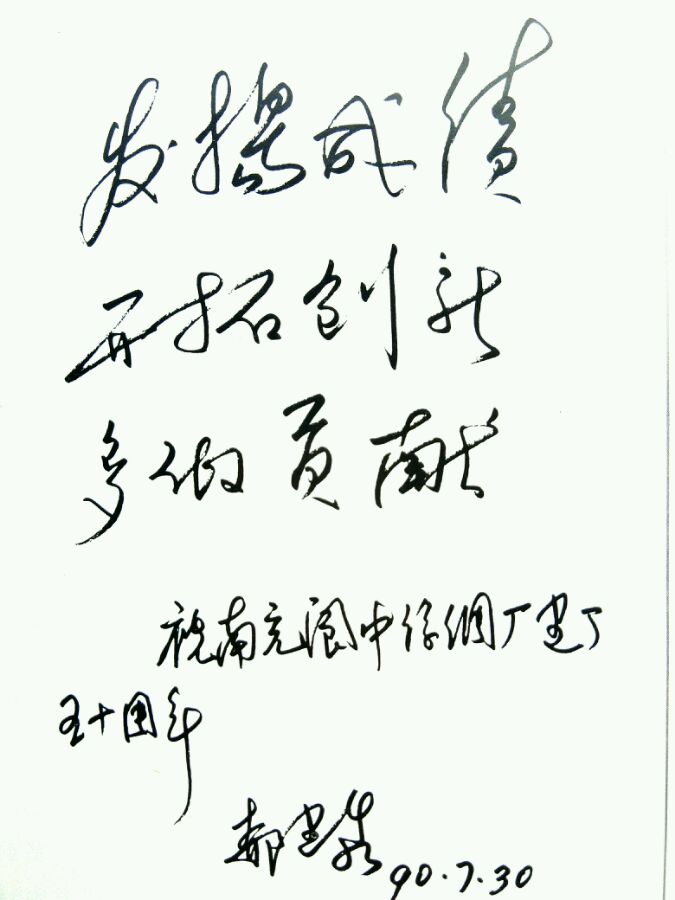 发扬成绩
开拓创新
多做贡献
祝南充阆中丝绸厂建厂
五十周年
郝建秀 90.7.30